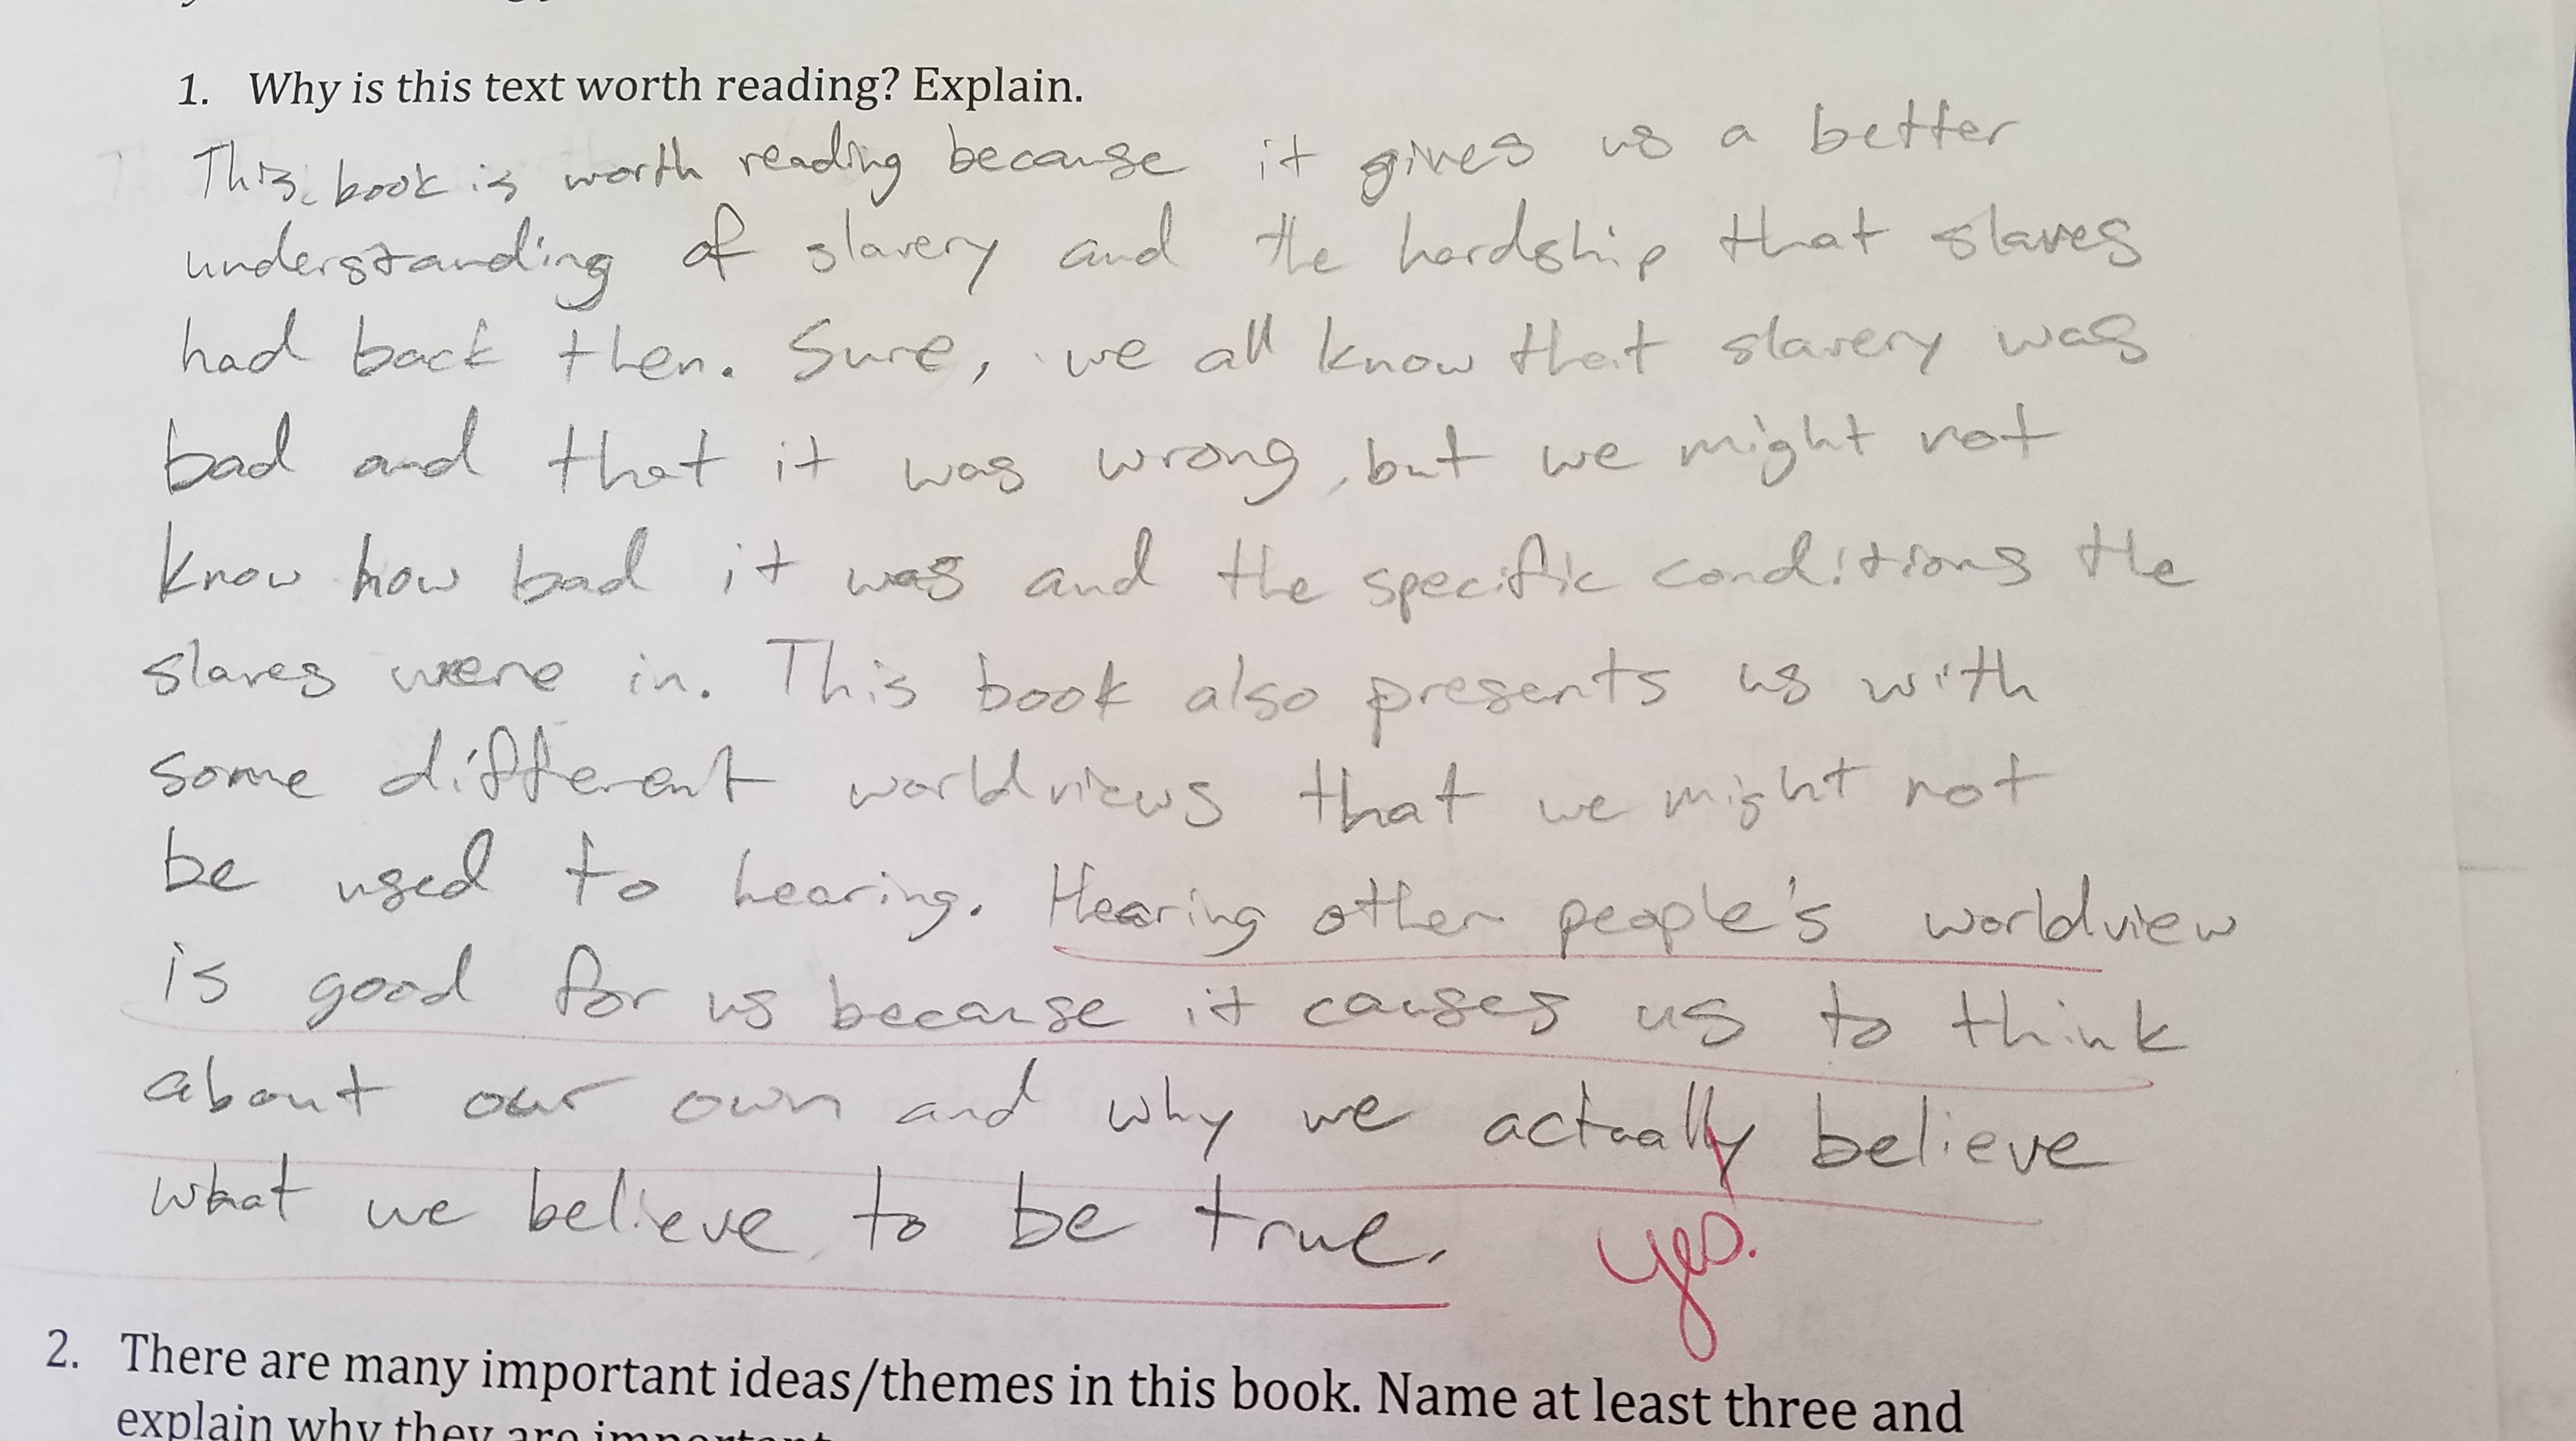 1. Why is this text worth reading? Explain.
This book is worth reading because it gives us a better
understanding of slavery and the hardship that slaves
had back then. Sure, we all know that slavery was
bad and that it was wrong, but we might not
know how bad it was and the specific conditions the
slaves were in. This book also presents us with
some different worldviews that we might not
be used to hearing. Hearing other people's worldview
is good for us because it causes us to think
about our own and why we actually believe
what we believe to be true.
yes.
2. There are many important ideas/themes in this book. Name at least three and
explain why they are important